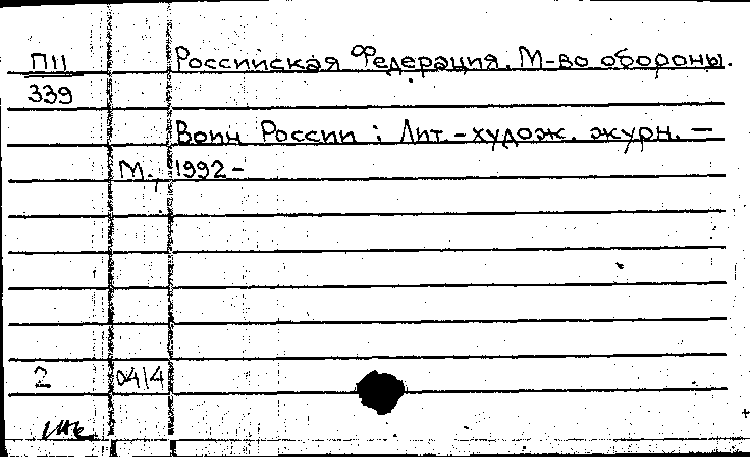 П11 Российская Федерация. М-во обороны.
339
Воин России : Лит.-худож. журн. —
М., 1992 -
2 04/4